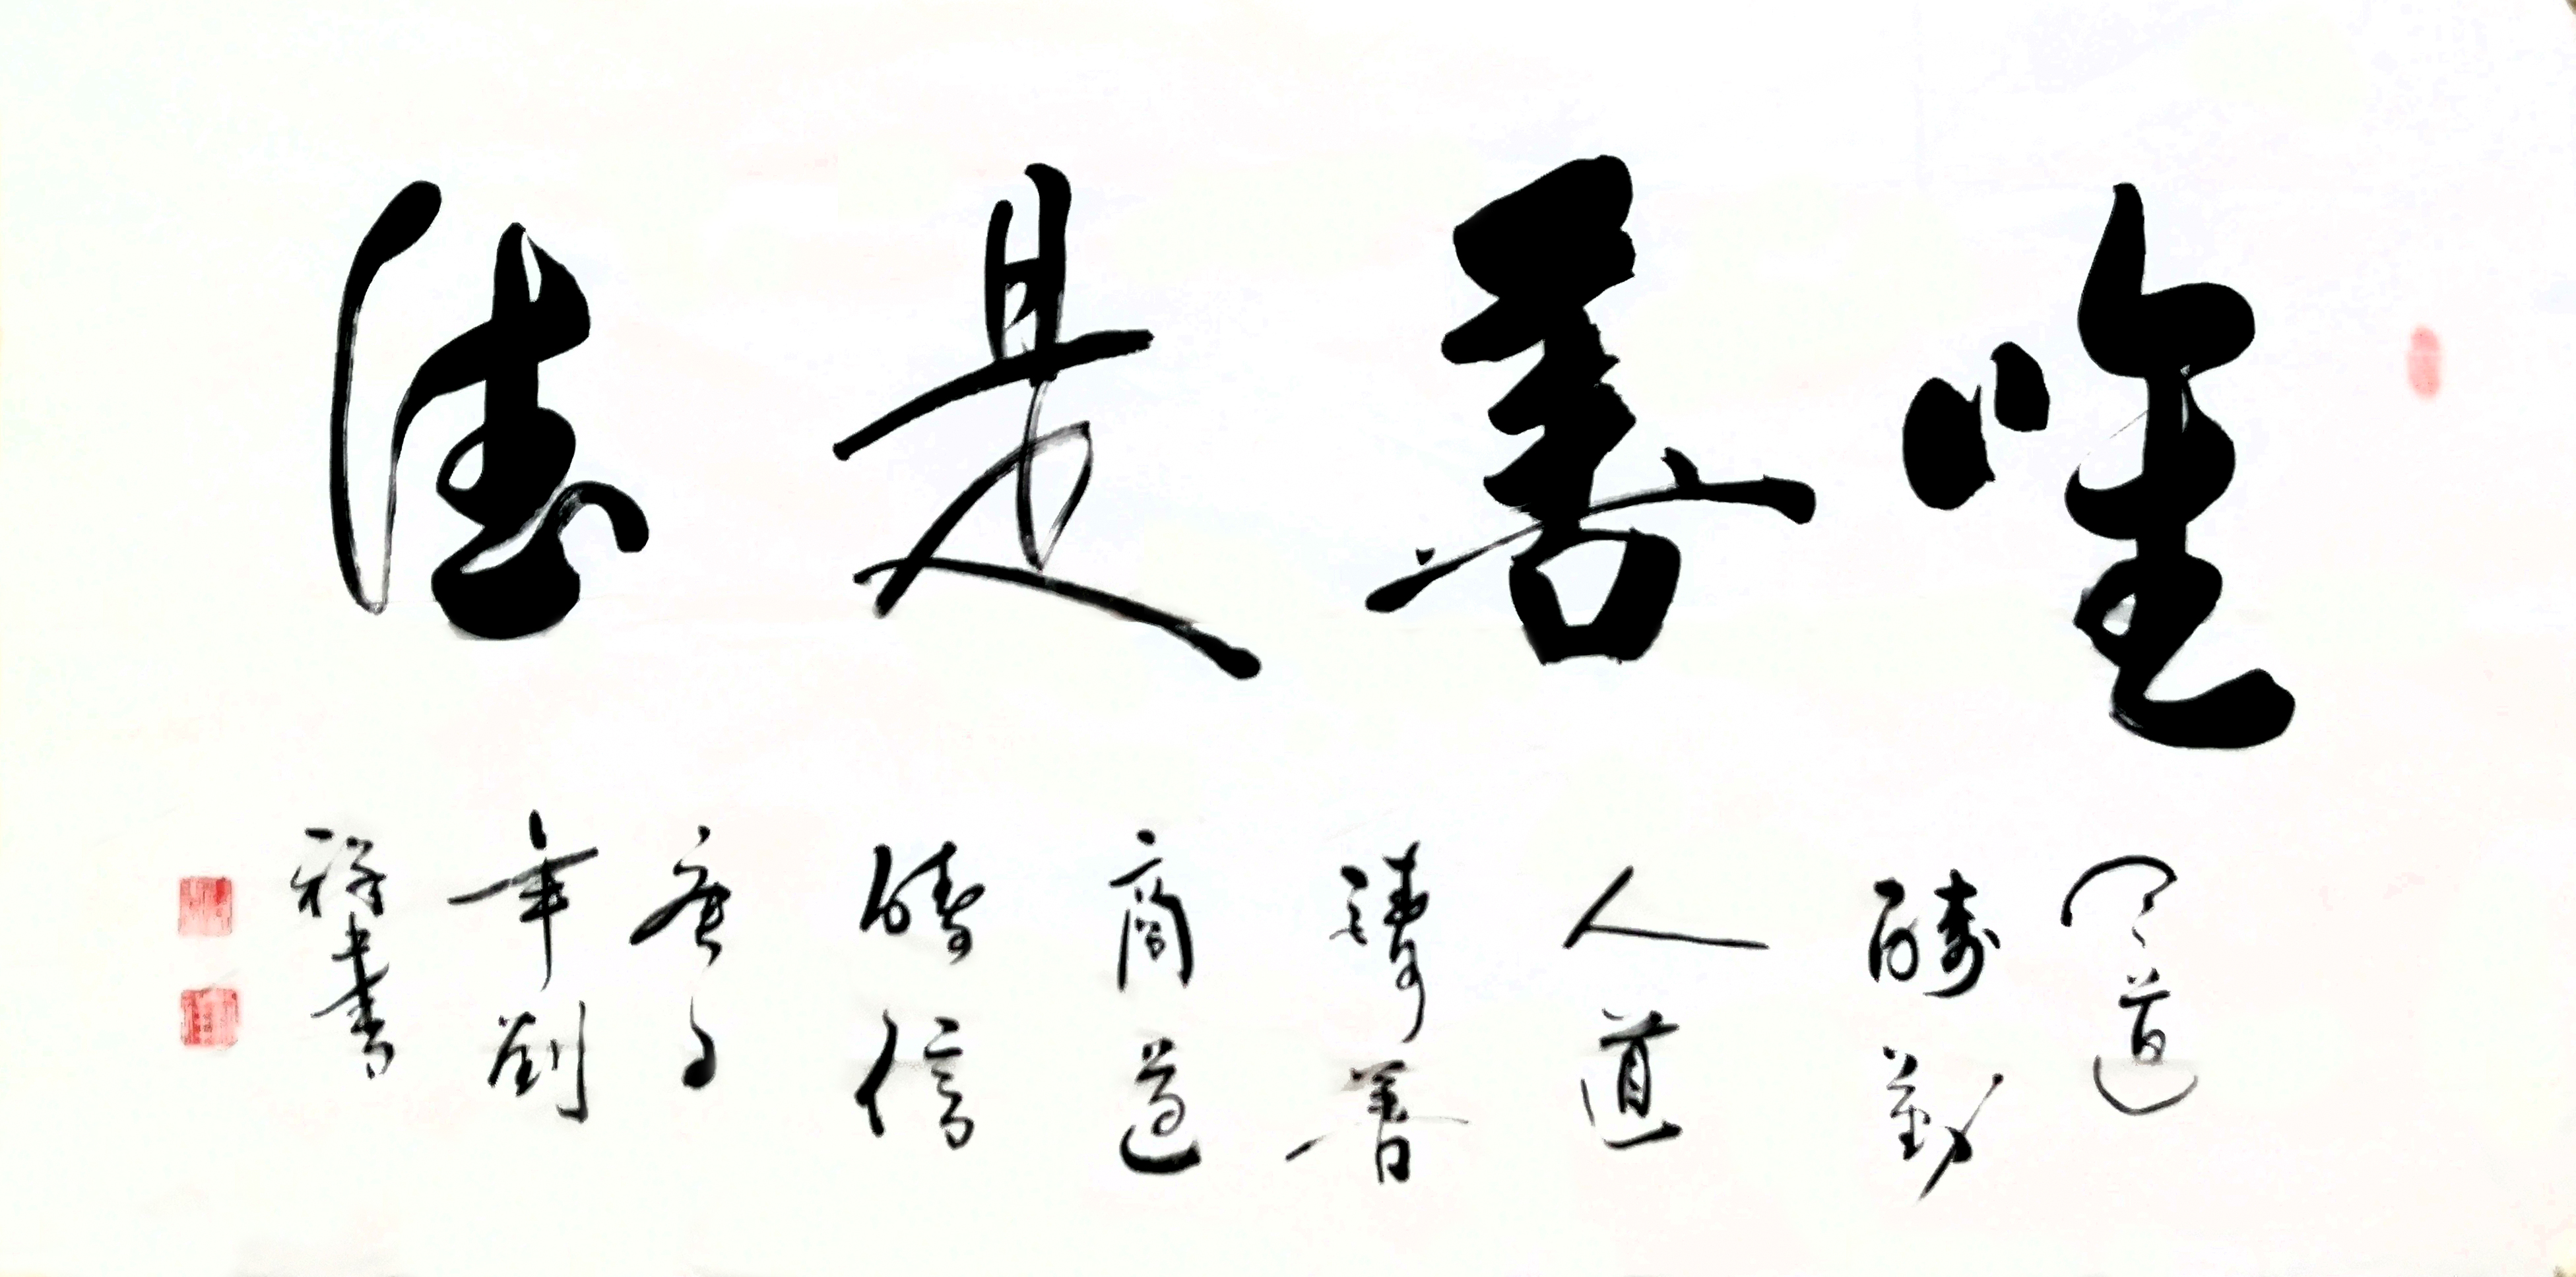 唯善是德
天道
酬勤
人道
酬善
商道
酬信
庚子
年劉
祥書